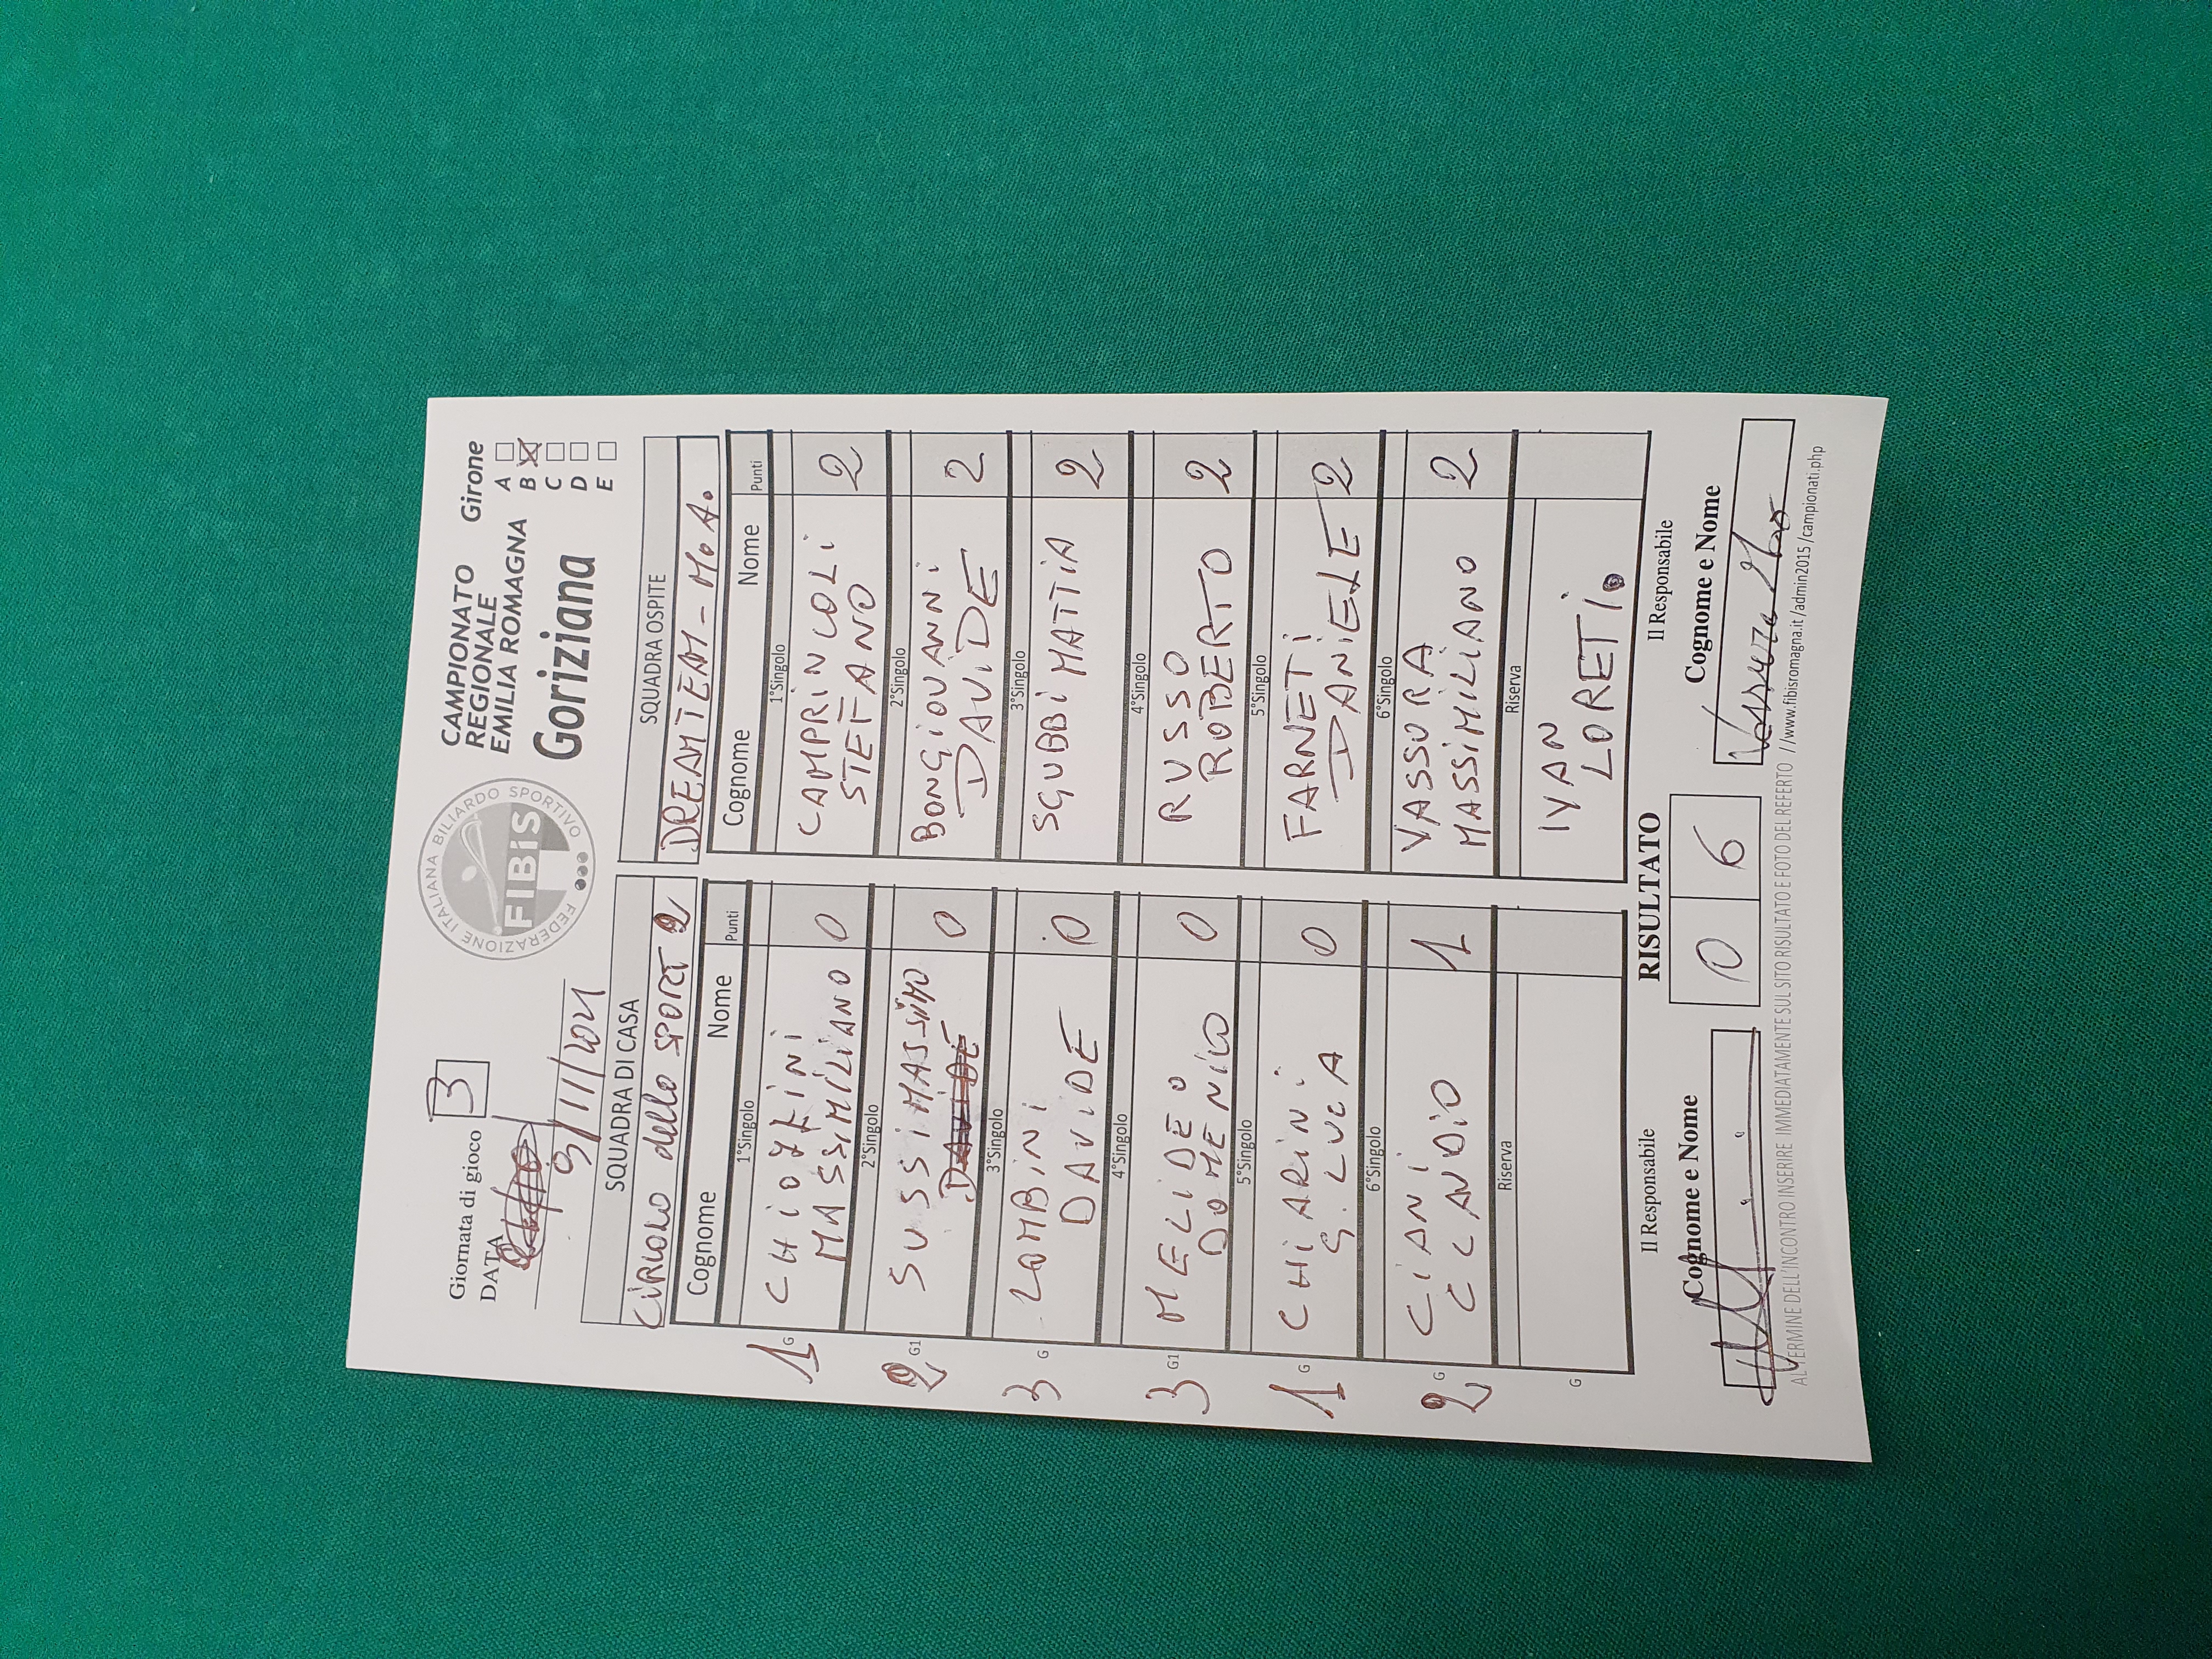 Giornata di gioco 3
DATA
9/11/2021
FEDERAZIONE ITALIANA BILIARDO SPORTIVO
FIBiS
CAMPIONATO
REGIONALE
EMILIA ROMAGNA
Goriziana
Girone
A
B X
C
D
E
SQUADRA DI CASA
CIRCOLO dello SPORT 2
Cognome Nome Punti
1°Singolo
1 G CHIOZZINI
MASSIMILIANO 0
2°Singolo
2 G1 SUSSI MASSIMO 0
DAVIDE
3°Singolo
3 G LOMBINI
DAVIDE 0
4°Singolo
3 G1 MELIDEO
DOMENICO 0
5°Singolo
1 G CHIARINI
G. LUCA 0
6°Singolo
2 G CIANI
CLAUDIO 1
Riserva
G
SQUADRA OSPITE
DREAM TEAM - M.A.
Cognome Nome Punti
1°Singolo
CAMPRINCOLI
STEFANO 2
2°Singolo
BONGIOVANNI
DAVIDE 2
3°Singolo
SGUBBI MATTIA 2
4°Singolo
RUSSO
ROBERTO 2
5°Singolo
FARNETI
DANIELE 2
6°Singolo
VASSURA
MASSIMILIANO 2
Riserva
IVAN
LORETI.
RISULTATO
0 6
Il Responsabile
Cognome e Nome
Il Responsabile
Cognome e Nome
AL TERMINE DELL'INCONTRO INSERIRE IMMEDIATAMENTE SUL SITO RISULTATO E FOTO DEL REFERTO //www.fibisromagna.it/admin2015/campionati.php